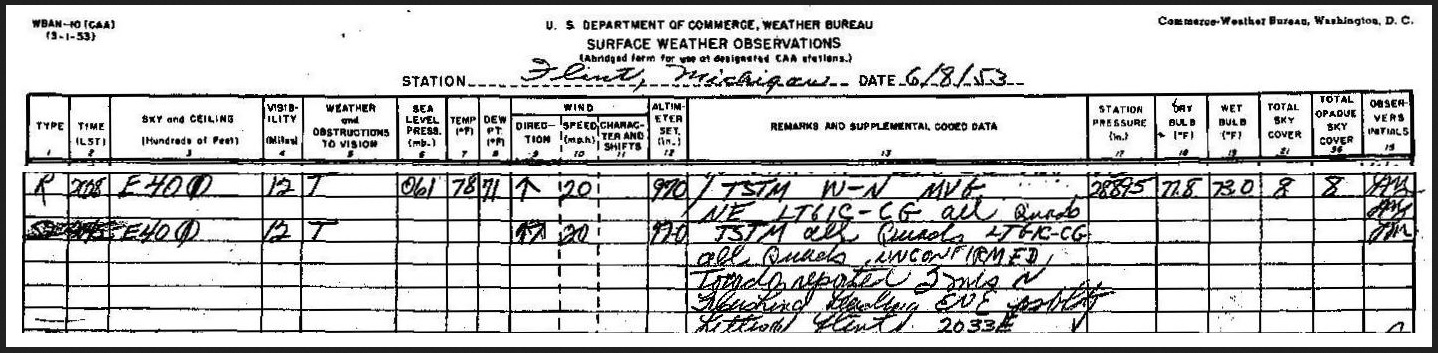 WBAN-10 (CAA)
(3-1-53)
U. S. DEPARTMENT OF COMMERCE, WEATHER BUREAU
Commerce-Weather Bureau, Washington, D. C.
SURFACE WEATHER OBSERVATIONS
(Abridged form for use at designated CAA stations.)
STATION Flint, Michigan DATE 6/8/53
TYPE TIME (LST) SKY and CEILING (Hundreds of Feet) VISIBILITY (Miles) WEATHER and OBSTRUCTIONS TO VISION SEA LEVEL PRESS. (mb.) TEMP (°F) DEW PT. (°F) WIND DIRECTION SPEED (m.p.h) CHARACTER AND SHIFTS ALTIMETER SET. (in.) REMARKS AND SUPPLEMENTAL CODED DATA STATION PRESSURE (in.) DRY BULB (°F) WET BULB (°F) TOTAL SKY COVER TOTAL OPAQUE SKY COVER OBSERVERS INITIALS
1 2 3 4 5 6 7 8 9 10 11 12 13 17 18 19 21 36 15
R 2028 E40⦶ 12 T 061 78 71 ↑ 20 970 / TSTM W-N MVG 28895 77.8 73.0 8 8
NE LTGIC-CG all Quads
E40⦶ 12 T 20 970 TSTM all Quads LTGIC-CG
all Quads UNCONFIRMED
Tornado reported 3 mis N
Flushing Heading ENE
Flint 2033E